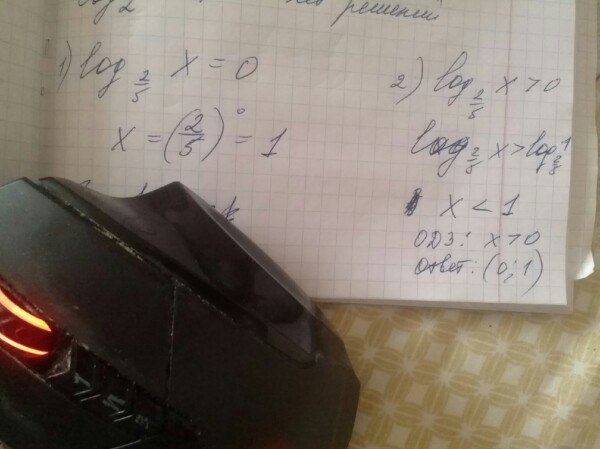 решений
1) log 2/5 x = 0
x = (2/5)⁰ = 1
2) log 2/5 x > 0
log 2/5 x > log 2/5 1
x < 1
ОДЗ: x > 0
Ответ: (0; 1)